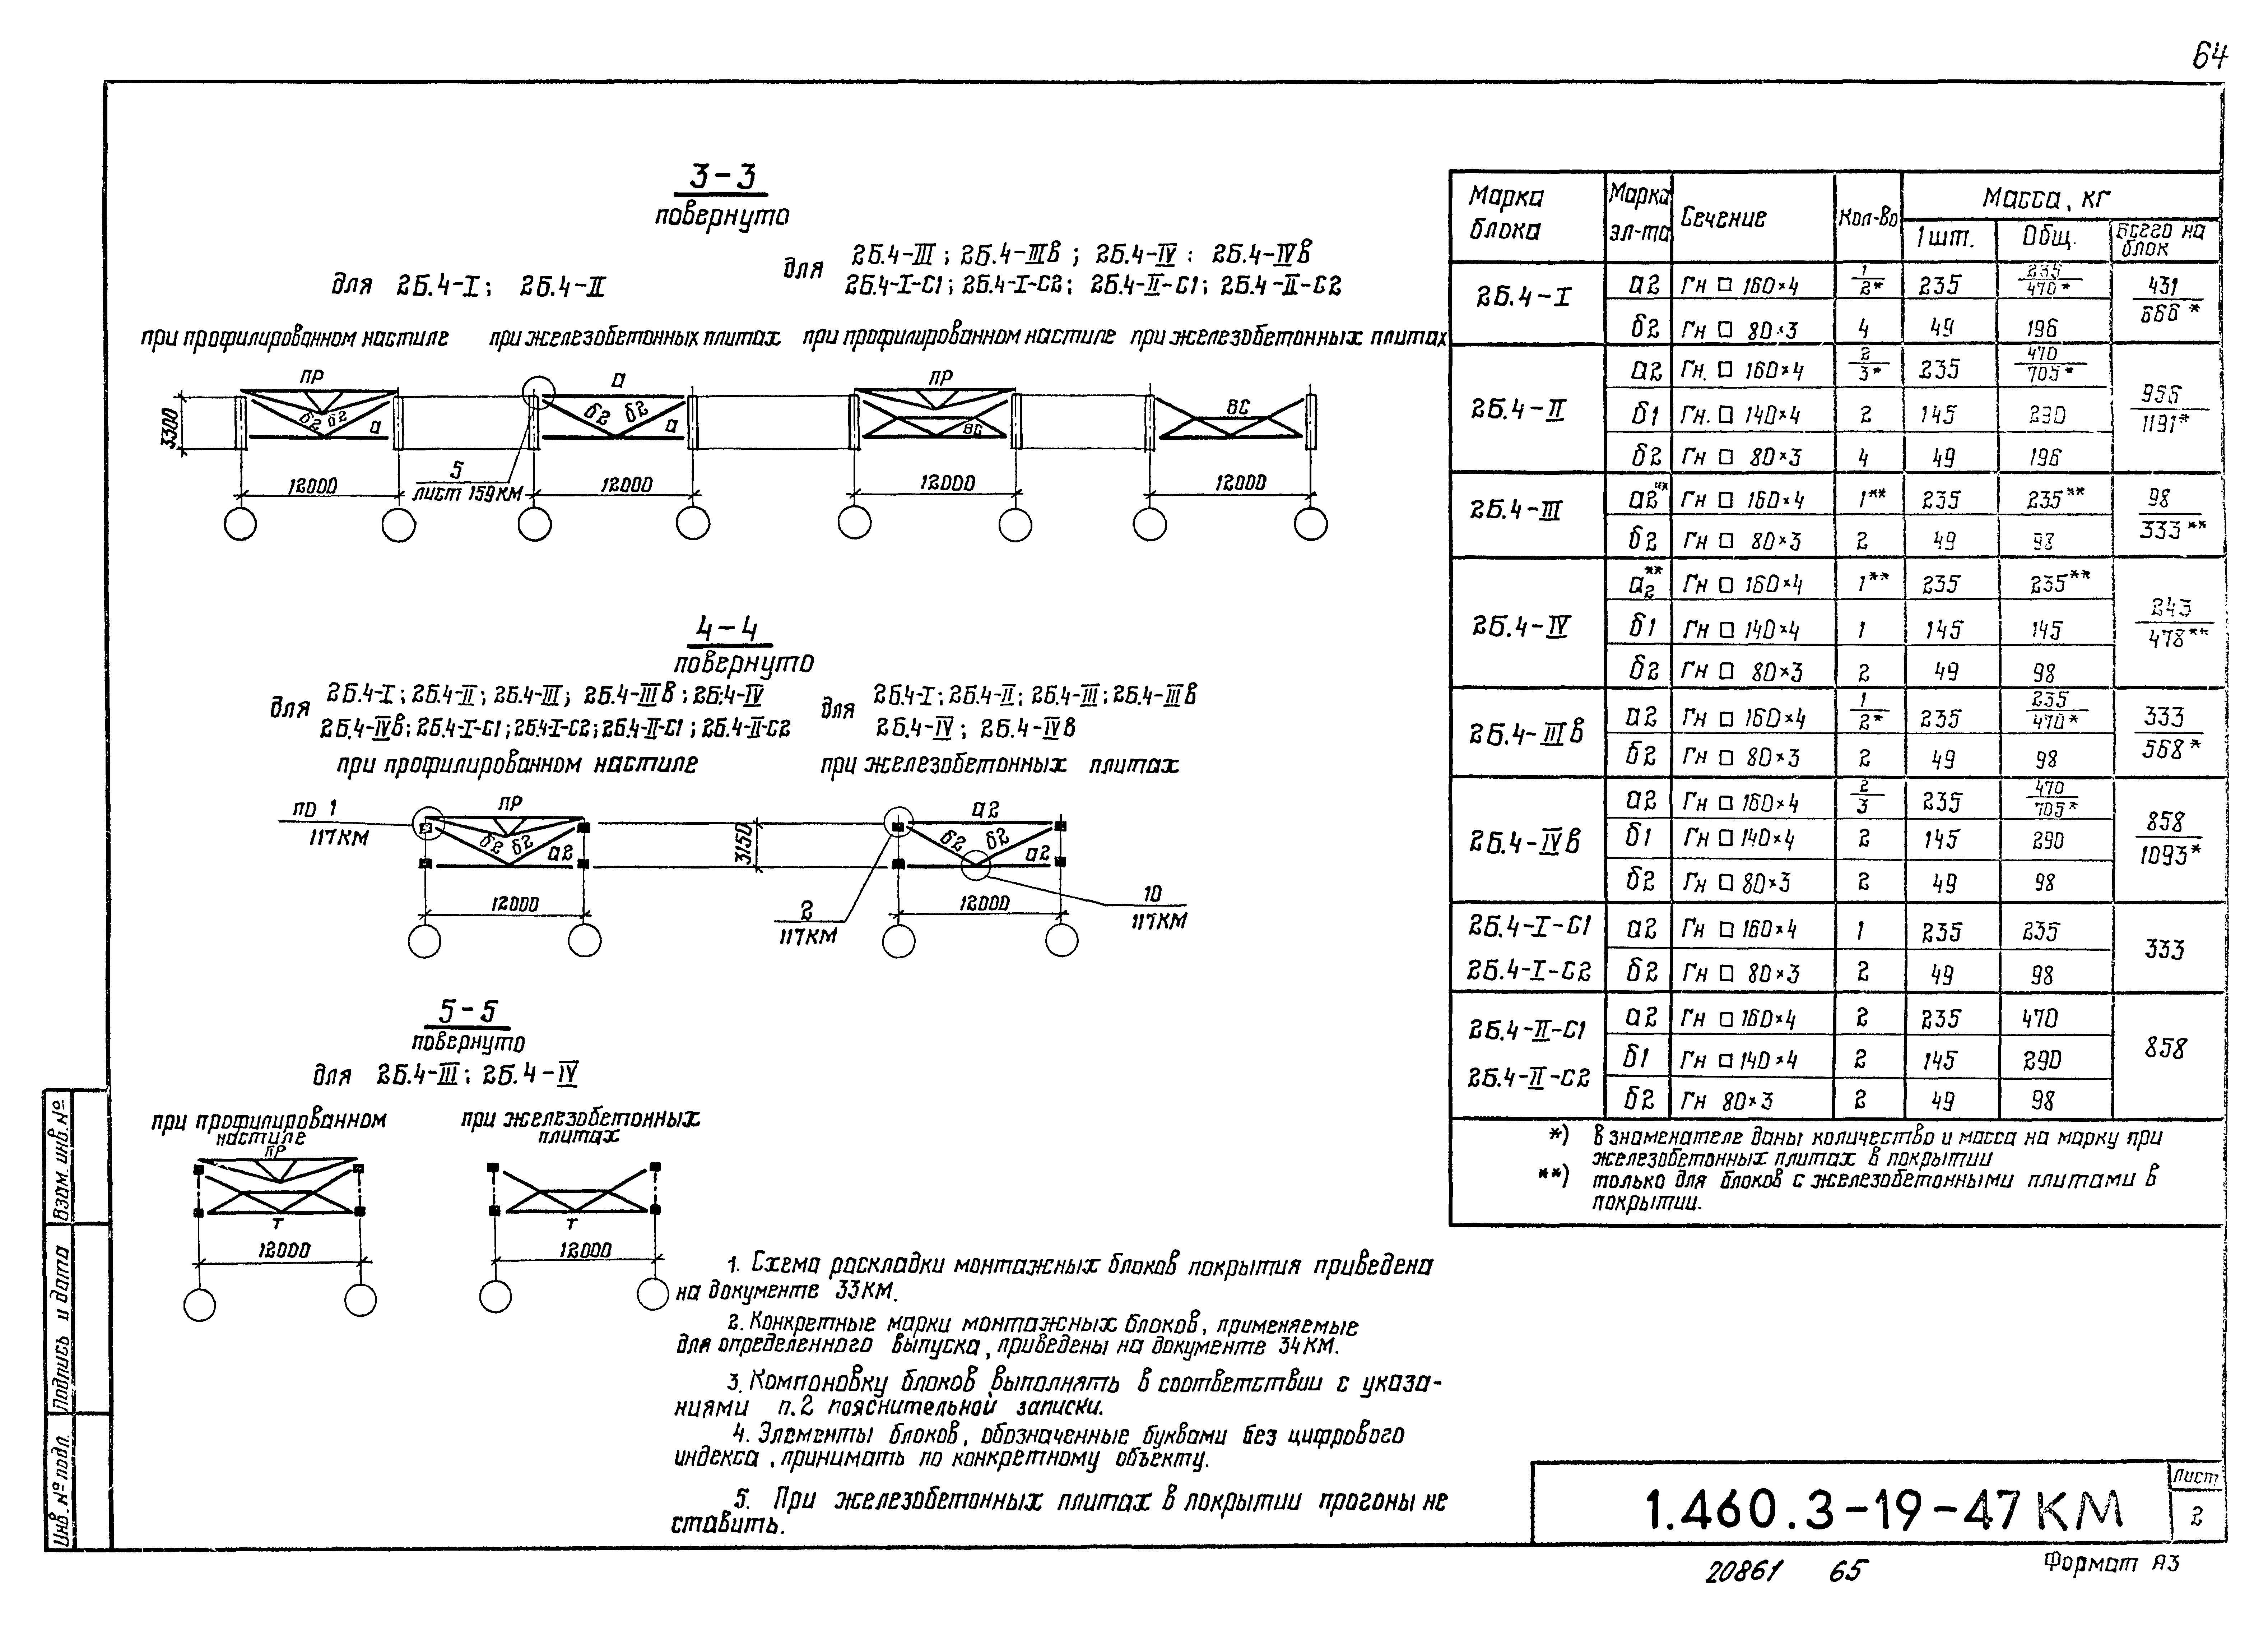 64
3-3
повернуто
для 2Б.4-I; 2Б.4-II
для 2Б.4-III; 2Б.4-IIIв; 2Б.4-IV; 2Б.4-IVв
2Б.4-I-С1; 2Б.4-I-С2; 2Б.4-II-С1; 2Б.4-II-С2
при профилированном настиле
при железобетонных плитах
при профилированном настиле
при железобетонных плитах
ПР
б2 б2
а
3300
12000
а
б2 б2
а
5
лист 159КМ
12000
ПР
ВС
12000
ВС
12000
4-4
повернуто
для 2Б.4-I; 2Б.4-II; 2Б.4-III; 2Б.4-IIIв; 2Б.4-IV
2Б.4-IVв; 2Б.4-I-С1; 2Б4-I-С2; 2Б.4-II-С1; 2Б.4-II-С2
при профилированном настиле
для 2Б.4-I; 2Б.4-II; 2Б.4-III; 2Б.4-IIIв
2Б.4-IV; 2Б.4-IVв
при железобетонных плитах
по 1
117КМ
ПР
б2 б2
а2
12000
3150
а2
б2 б2
а2
2
117КМ
12000
10
117КМ
5-5
повернуто
для 2Б.4-III; 2Б.4-IV
при профилированном
настиле
ПР
Т
12000
при железобетонных
плитах
Т
12000
1. Схема раскладки монтажных блоков покрытия приведена
на документе 33КМ.
2. Конкретные марки монтажных блоков, применяемые
для определенного выпуска, приведены на документе 34КМ.
3. Компоновку блоков выполнять в соответствии с указа-
ниями п.2 пояснительной записки.
4. Элементы блоков, обозначенные буквами без цифрового
индекса, принимать по конкретному объекту.
5. При железобетонных плитах в покрытии прогоны не
ставить.
Марка блока | Марка эл-та | Сечение | Кол-во | Масса, кг
1 шт. | Общ. | Всего на блок
2Б.4-I | а2 | Гн □ 160×4 | 1/2* | 235 | 235/470* | 431/666*
б2 | Гн □ 80×3 | 4 | 49 | 196
2Б.4-II | а2 | Гн. □ 160×4 | 2/3* | 235 | 470/705* | 956/1191*
б1 | Гн. □ 140×4 | 2 | 145 | 290
б2 | Гн □ 80×3 | 4 | 49 | 196
2Б.4-III | а2** | Гн □ 160×4 | 1** | 235 | 235** | 98/333**
б2 | Гн □ 80×3 | 2 | 49 | 98
2Б.4-IV | а2** | Гн □ 160×4 | 1** | 235 | 235** | 243/478**
б1 | Гн □ 140×4 | 1 | 145 | 145
б2 | Гн □ 80×3 | 2 | 49 | 98
2Б.4-IIIв | а2 | Гн □ 160×4 | 1/2* | 235 | 235/470* | 333/568*
б2 | Гн □ 80×3 | 2 | 49 | 98
2Б.4-IVв | а2 | Гн □ 160×4 | 2/3 | 235 | 470/705* | 858/1093*
б1 | Гн □ 140×4 | 2 | 145 | 290
б2 | Гн □ 80×3 | 2 | 49 | 98
2Б.4-I-С1 | а2 | Гн □ 160×4 | 1 | 235 | 235 | 333
2Б.4-I-С2 | б2 | Гн □ 80×3 | 2 | 49 | 98
2Б.4-II-С1 | а2 | Гн □ 160×4 | 2 | 235 | 470 | 858
2Б.4-II-С2 | б1 | Гн □ 140×4 | 2 | 145 | 290
б2 | Гн 80×3 | 2 | 49 | 98
*) в знаменателе даны количество и масса на марку при
железобетонных плитах в покрытии
**) только для блоков с железобетонными плитами в
покрытии.
Взам. инв. №
Подпись и дата
Инв. № подл.
1.460.3-19-47КМ
Лист
2
20861 65
Формат А3